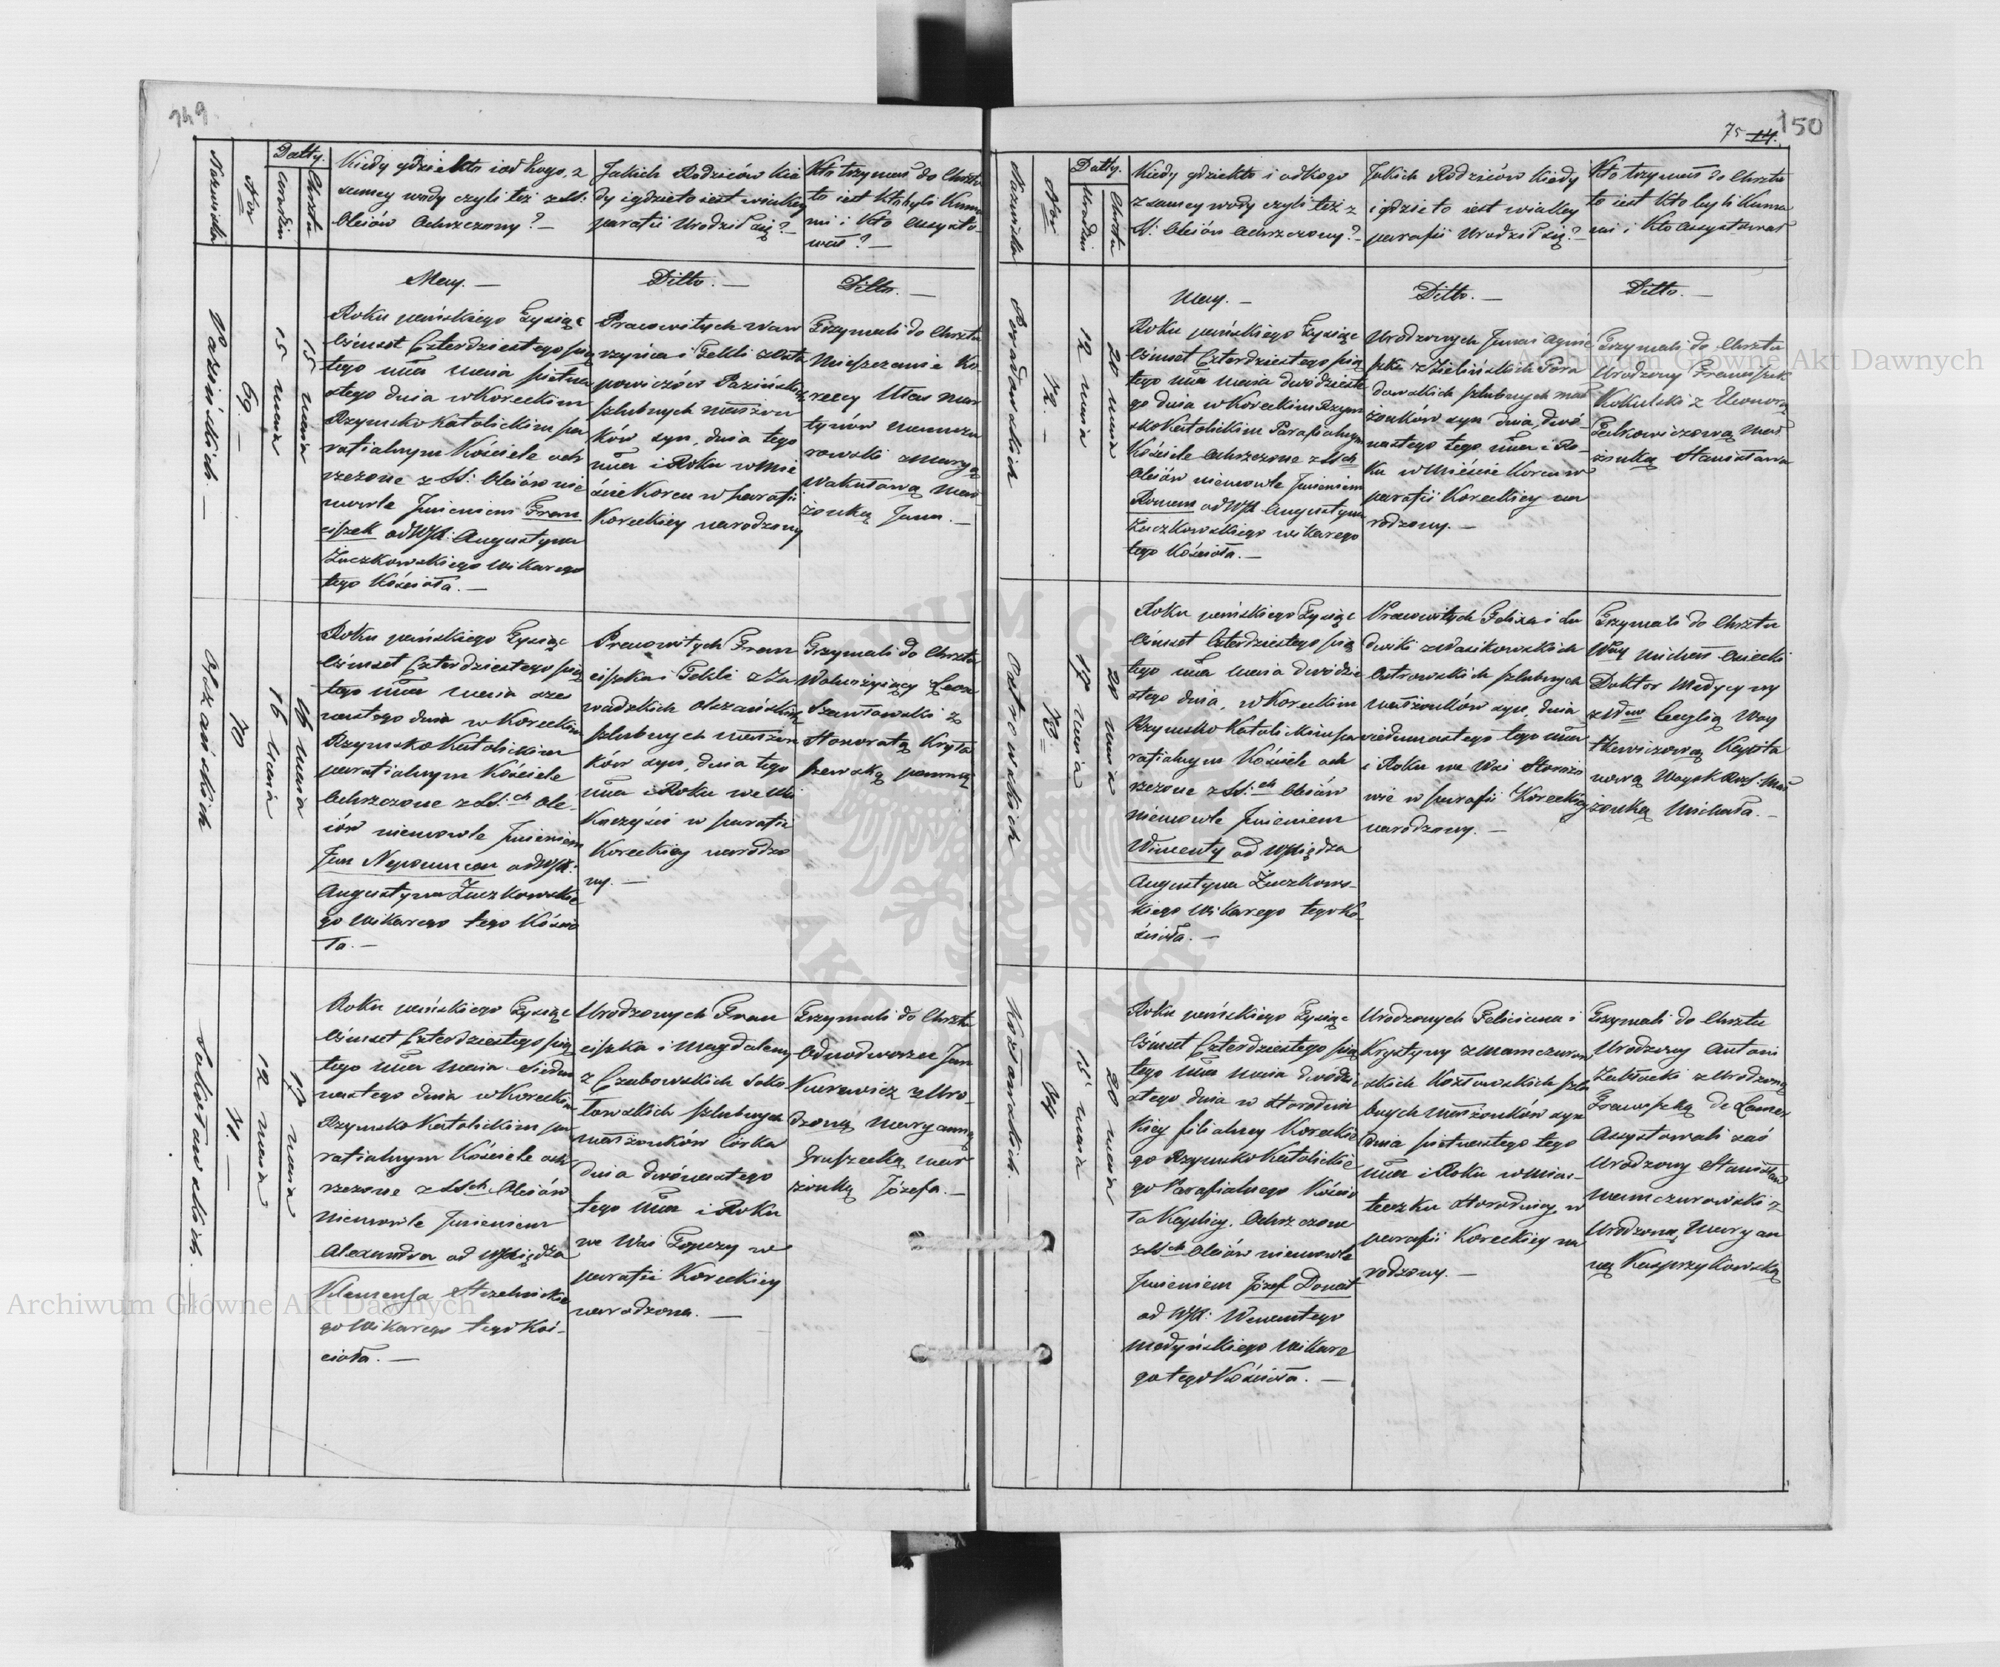 149
Nazwiska
Nro
Datty.
Urodzin
Chrztu
Kiedy gdzie kto i od kogo, z
samey wody czyli też z SS:
Oleiów Ochrzczony? —
Jakich Rodziców kie
dy i gdzie to iest w iakiey
parafii Urodził się? —
Kto trzymał do Chrztu
to iest kto byli Kuma
mi i Kto Assysto-
wał? —
Pazińskich. —
69 —
15 maia
15 maia
May. —
Roku pańskiego Tysiąc
Ośmset Czterdziestego pią
tego Mca Maia pietna
stego dnia w Koreckim
Rzymsko Katolickim pa
rafialnym Kościele och
rzczone z SS: Oleiów nie
mowle Jmieniem Fran
ciszek od WJX: Augustyna
Żuczkowskiego Wikarego
tego Kościoła. —
Ditto. —
Pracowitych Waw
rzyńca i Tekli z Osta
powiczów Pazińskich
szlubnych małżon
ków syn, dnia tego
Mca i Roku w Mie
ście Korcu w parafii
Koreckiey narodzony
Ditto. —
Trzymali do Chrztu
Mieszczanie Ko-
reccy
rowski z Maryą
małżonką Jana. —
Olszańskich
70
16 maia
16 maia
Roku pańskiego Tysiąc
Ośmset Czterdziestego pią
tego Mca Maia szes
nastego dnia w Koreckim
Rzymsko Katolickim
parafialnym Kościele
Ochrzczone z SS:ch Ole-
iów niemowle Jmieniem
Jan Nepomucen od WJX:
Augustyna Żuczkowskie
go Wikarego tego Kościo
ła. —
Pracowitych Fran
ciszka i Tekli z Za
wadzkich Olszańskich
szlubnych małżon
ków syn, dnia tego
Mca i Roku we Wsi
w parafii
Koreckiey narodzo
ny. —
Trzymali do Chrztu
Leon
Szawłowski z
Honoratą
panną
Sokołowskich. —
71. —
12 maia
17 maia
Roku pańskiego Tysiąc
Ośmset Czterdziestego pią
tego Mca Maia Siedm
nastego dnia w Koreckim
Rzymsko Katolickim pa
rafialnym Kościele och
rzczone z SSch Oleiów
Niemowle Jmieniem
Alexandra od WXiędza
Klemensa Strzelnickie
go Wikarego tego Koś-
cioła. —
Urodzonych Fran
ciszka i Magdaleny
z Czubowskich Soko
łowskich szlubnych
małżonków Córka
dnia dwónastego
tego Mca i Roku
we Wsi w
parafii Koreckiey
narodzona. —
Trzymali do Chrztu
Odnodworzec Jan
Kurewicz z Uro-
dzoną Maryanną
Gruszecką mał
żonką Józefa. —
150
75
Nazwiska
Nro
Datty.
Urodzin
Chrztu
Kiedy gdzie kto i od kogo
z samey wody czyli też z
SS: Oleiów Ochrzczony? —
Jakich Rodziców kiedy
i gdzie to iest w iakiey
parafii Urodził się? —
Kto trzymał do Chrztu
to iest kto byli Kuma
mi i Kto Assystował
Poradowskich
72 —
12 maia
20 maia
May. —
Roku pańskiego Tysiąc
Ośmset Czterdziestego pią
tego Mca Maia dwódzieste
go dnia w Koreckim Rzym
sko Katolickim Parafialnym
Kościele Ochrzczone z SSch
Oleiów niemowle Jmieniem
Roman od WJX Augustyna
Żuczkowskiego wikarego
tego Kościoła. —
Ditto. —
Urodzonych Jana i Agnie
szki z Zielińskich Pora
dowskich szlubnych mał
żonków syn dnia dwó-
nastego tego Mca i Ro-
ku w Mieście Korcu w
parafii Koreckiey na
rodzony. —
Ditto. —
Trzymali do Chrztu
Urodzony Franciszek
Rokulski z Eleonorą
mał
żonką Stanisława
Ostrowskich
73
17 maia
20 maia
Roku pańskiego Tysiąc
Ośmset Czterdziestego pią
tego Mca Maia dwódzie
stego dnia, w Koreckim
Rzymsko Katolickim pa
rafialnym Kościele och
rzczone z SS:ch Oleiów
niemowle Jmieniem
Wincenty od WXiędza
Augustyna Żuczkows-
kiego Wikarego tego Ko-
ścioła. —
Pracowitych Felixa i Lu
dwiki z Wasikowskich
Ostrowskich szlubnych
małżonków syn, dnia
siedmnastego tego Mca
i Roku we Wsi Storożo
wie w parafii Koreckiey
narodzony. —
Trzymali do Chrztu
Wny Michał Osiecki
Doktor Medycyny
z Wną Cecylią Woy
tkiewiczową Kapita
nową Woysk Ross: Mał
żonką Michała. —
Kozłowskich. —
74
15 maia
20 maia
Roku pańskiego Tysiąc
Ośmset Czterdziestego pią
tego Mca Maia dwódzie
stego dnia w Horodnic
kiey filialney Koreckie
go Rzymsko Katolickie
go Parafialnego Kościo
ła Kaplicy, Ochrzczone
z SSch Oleiów niemowle
Jmieniem Józef Donat
od WJX: Wincentego
Medyńskiego Wikare
go tego Kościoła. —
Urodzonych Felicyana i
Krystyny z Mamczurow
skich Kozłowskich szlu
bnych Małżonków syn
dnia pietnastego tego
Mca i Roku w Mias-
teczku Horodnicy w
parafii Koreckiey na
rodzony. —
Trzymali do Chrztu
Urodzony Antoni
Zabłocki z Urodzoną
Franciszką de Lames
Assystowali zaś
Urodzony Stanisław
Mamczurowski z
Urodzoną Maryan
ną Kasprzykowską
Archiwum Główne Akt Dawnych
Archiwum Główne Akt Dawnych